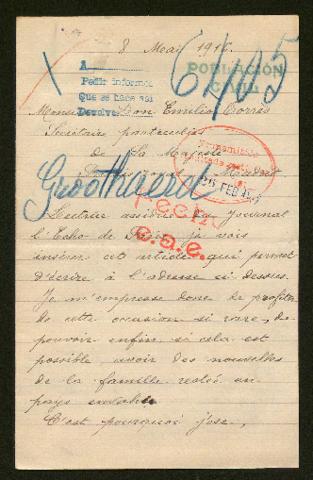 8 Mai 1916.
A
Pedir informe
Que se hace
Devolve
POBLACIÓN
CIVIL
6405
Don Emilio Torres
Secrétaire particulier
de Sa Majesté
Madrid
26 FEB
Groothaerd
Lecteur assidu du Journal
l'Echo de Paris je vois
insérer cet article qui permet
d'écrire à l'adresse ci dessus.
Je m'empresse donc de profiter
de cette occasion si rare, de
pouvoir enfin si cela est
possible avoir des nouvelles
de la famille restée en
pays envahi
C'est pourquoi j'ose,